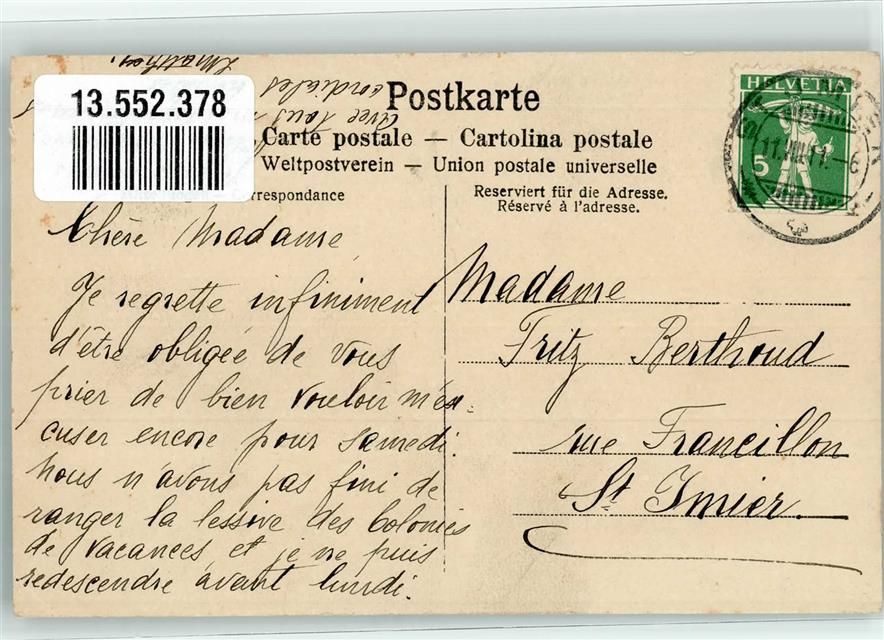 13.552.378
Postkarte
Carte postale — Cartolina postale
Weltpostverein — Union postale universelle
rrespondance
Reserviert für die Adresse.
Réservé à l'adresse.
HELVETIA
5
Chère Madame
Je regrette infiniment
d'être obligée de vous
prier de bien vouloir m'ex-
cuser encore pour samedi.
Nous n'avons pas fini de
ranger la lessive des Colonies
de vacances et je ne puis
redescendre avant lundi.
Avec tous
cordiales
Madame
Fritz Berthoud
rue Francillon
St Imier.